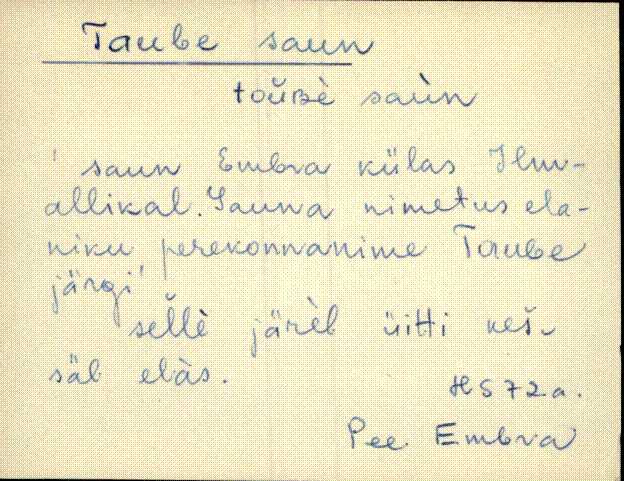 Taube saun
toŭʙè saùn
' saun Embra külas Ilm-
allikal. Sauna nimetus ela-
niku perekonnanime Taube
järgi'
selle järèl üitti keš-
säb elàs.
HS 72a.
Pee Embra